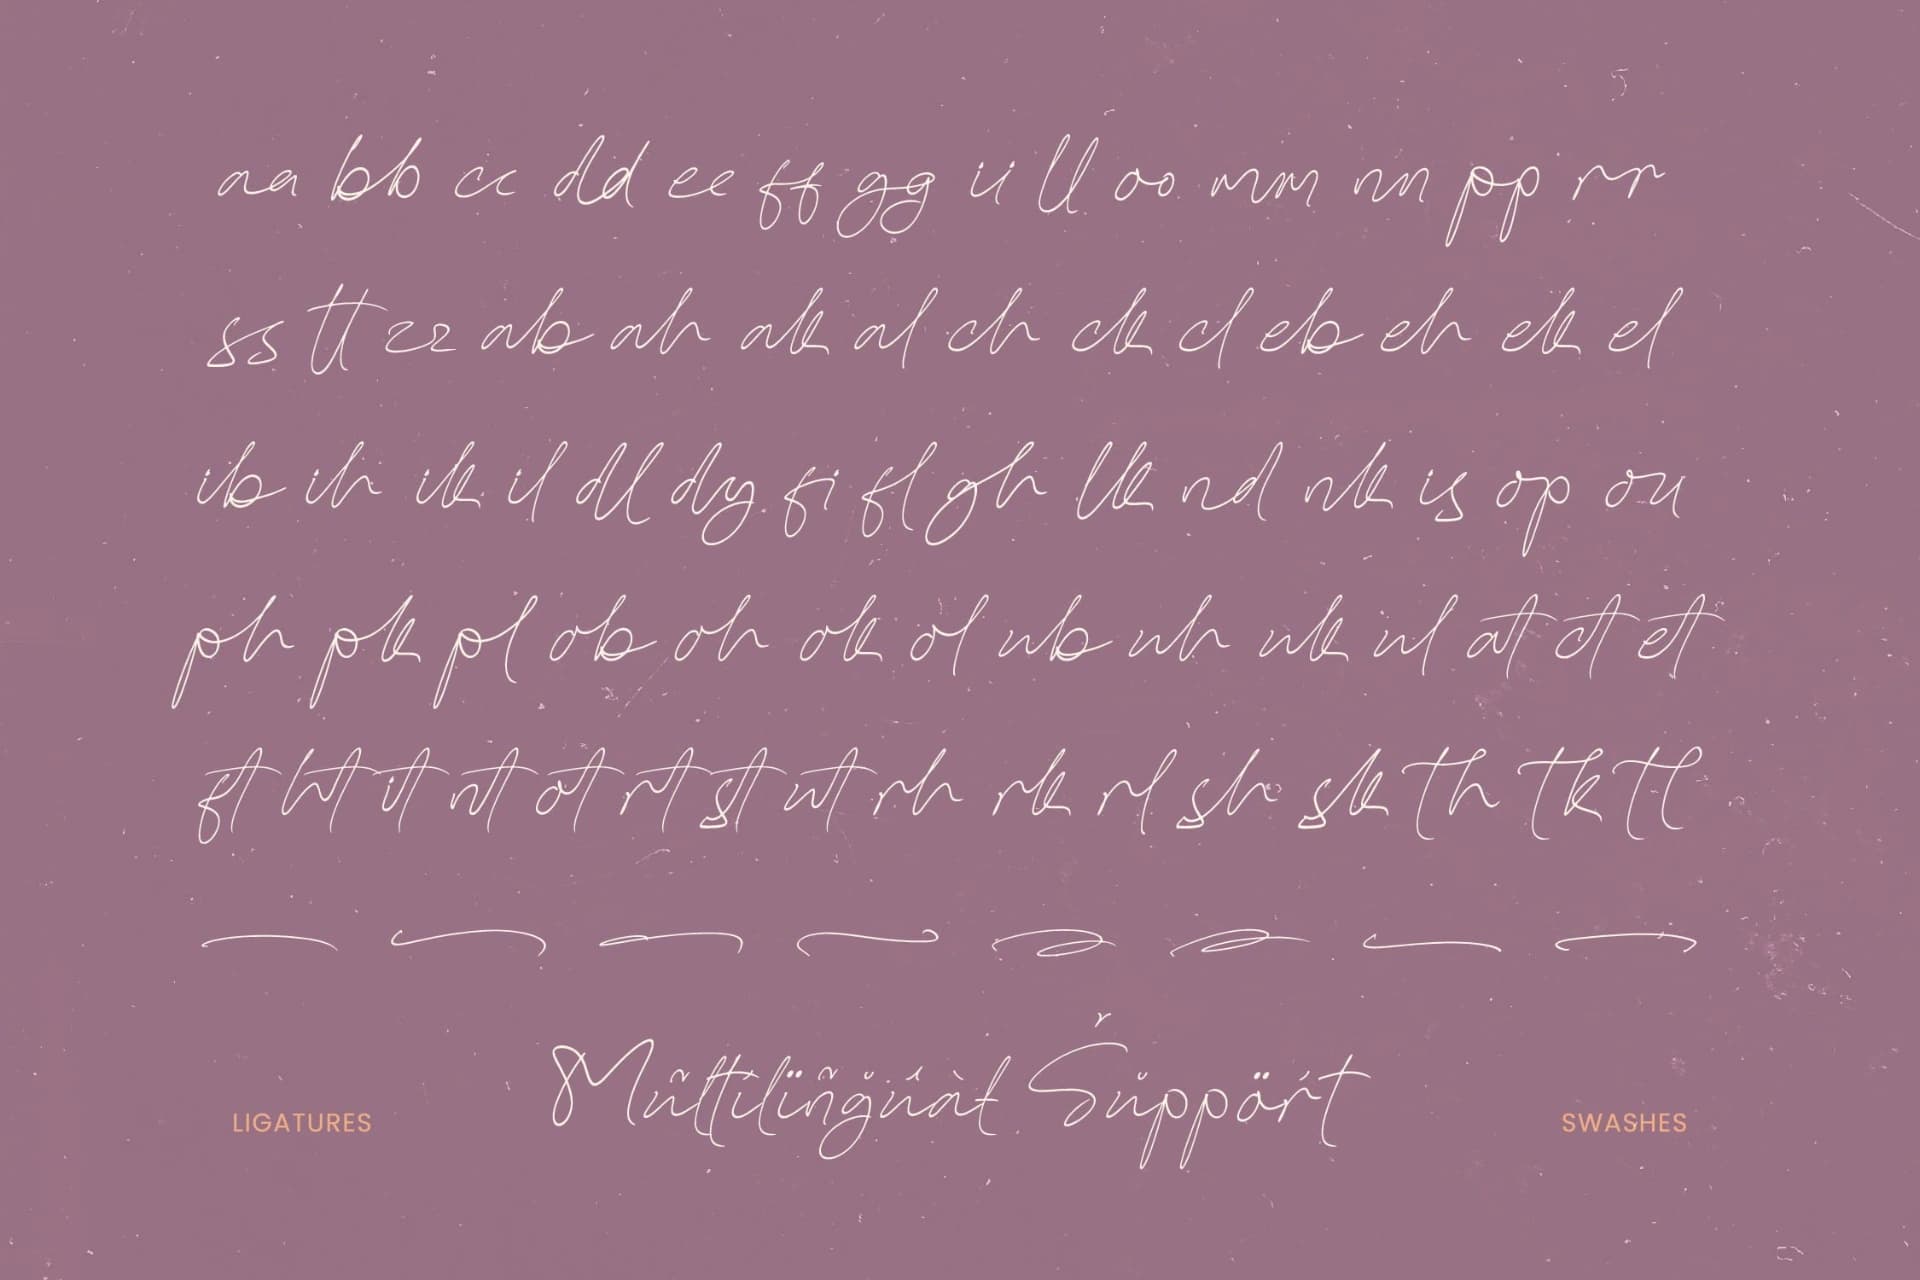 aa bb cc dd ee ff gg ii ll oo mm nn pp rr
ss tt zz ab ah ak al ch ck cl eb eh ek el
ib ih ik il dl dy fi fl gh lk nd nk is op ou
ph pk pl ob oh ok ol ub uh uk ul at ct et
ft ht it nt ot rt st ut rh rk rl sh sk th tk tl
LIGATURES
SWASHES